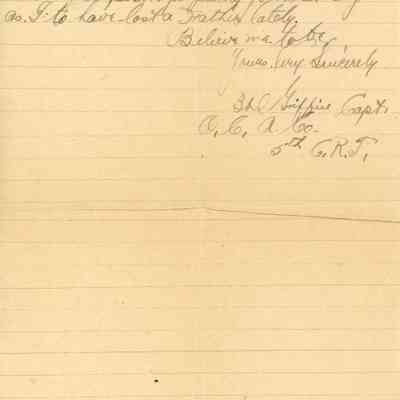 as I to have lost a Brother lately.
Believe me to be
Yours Very Sincerely
Griffin Capt.
O. C. A Co.
5th C.R.T.